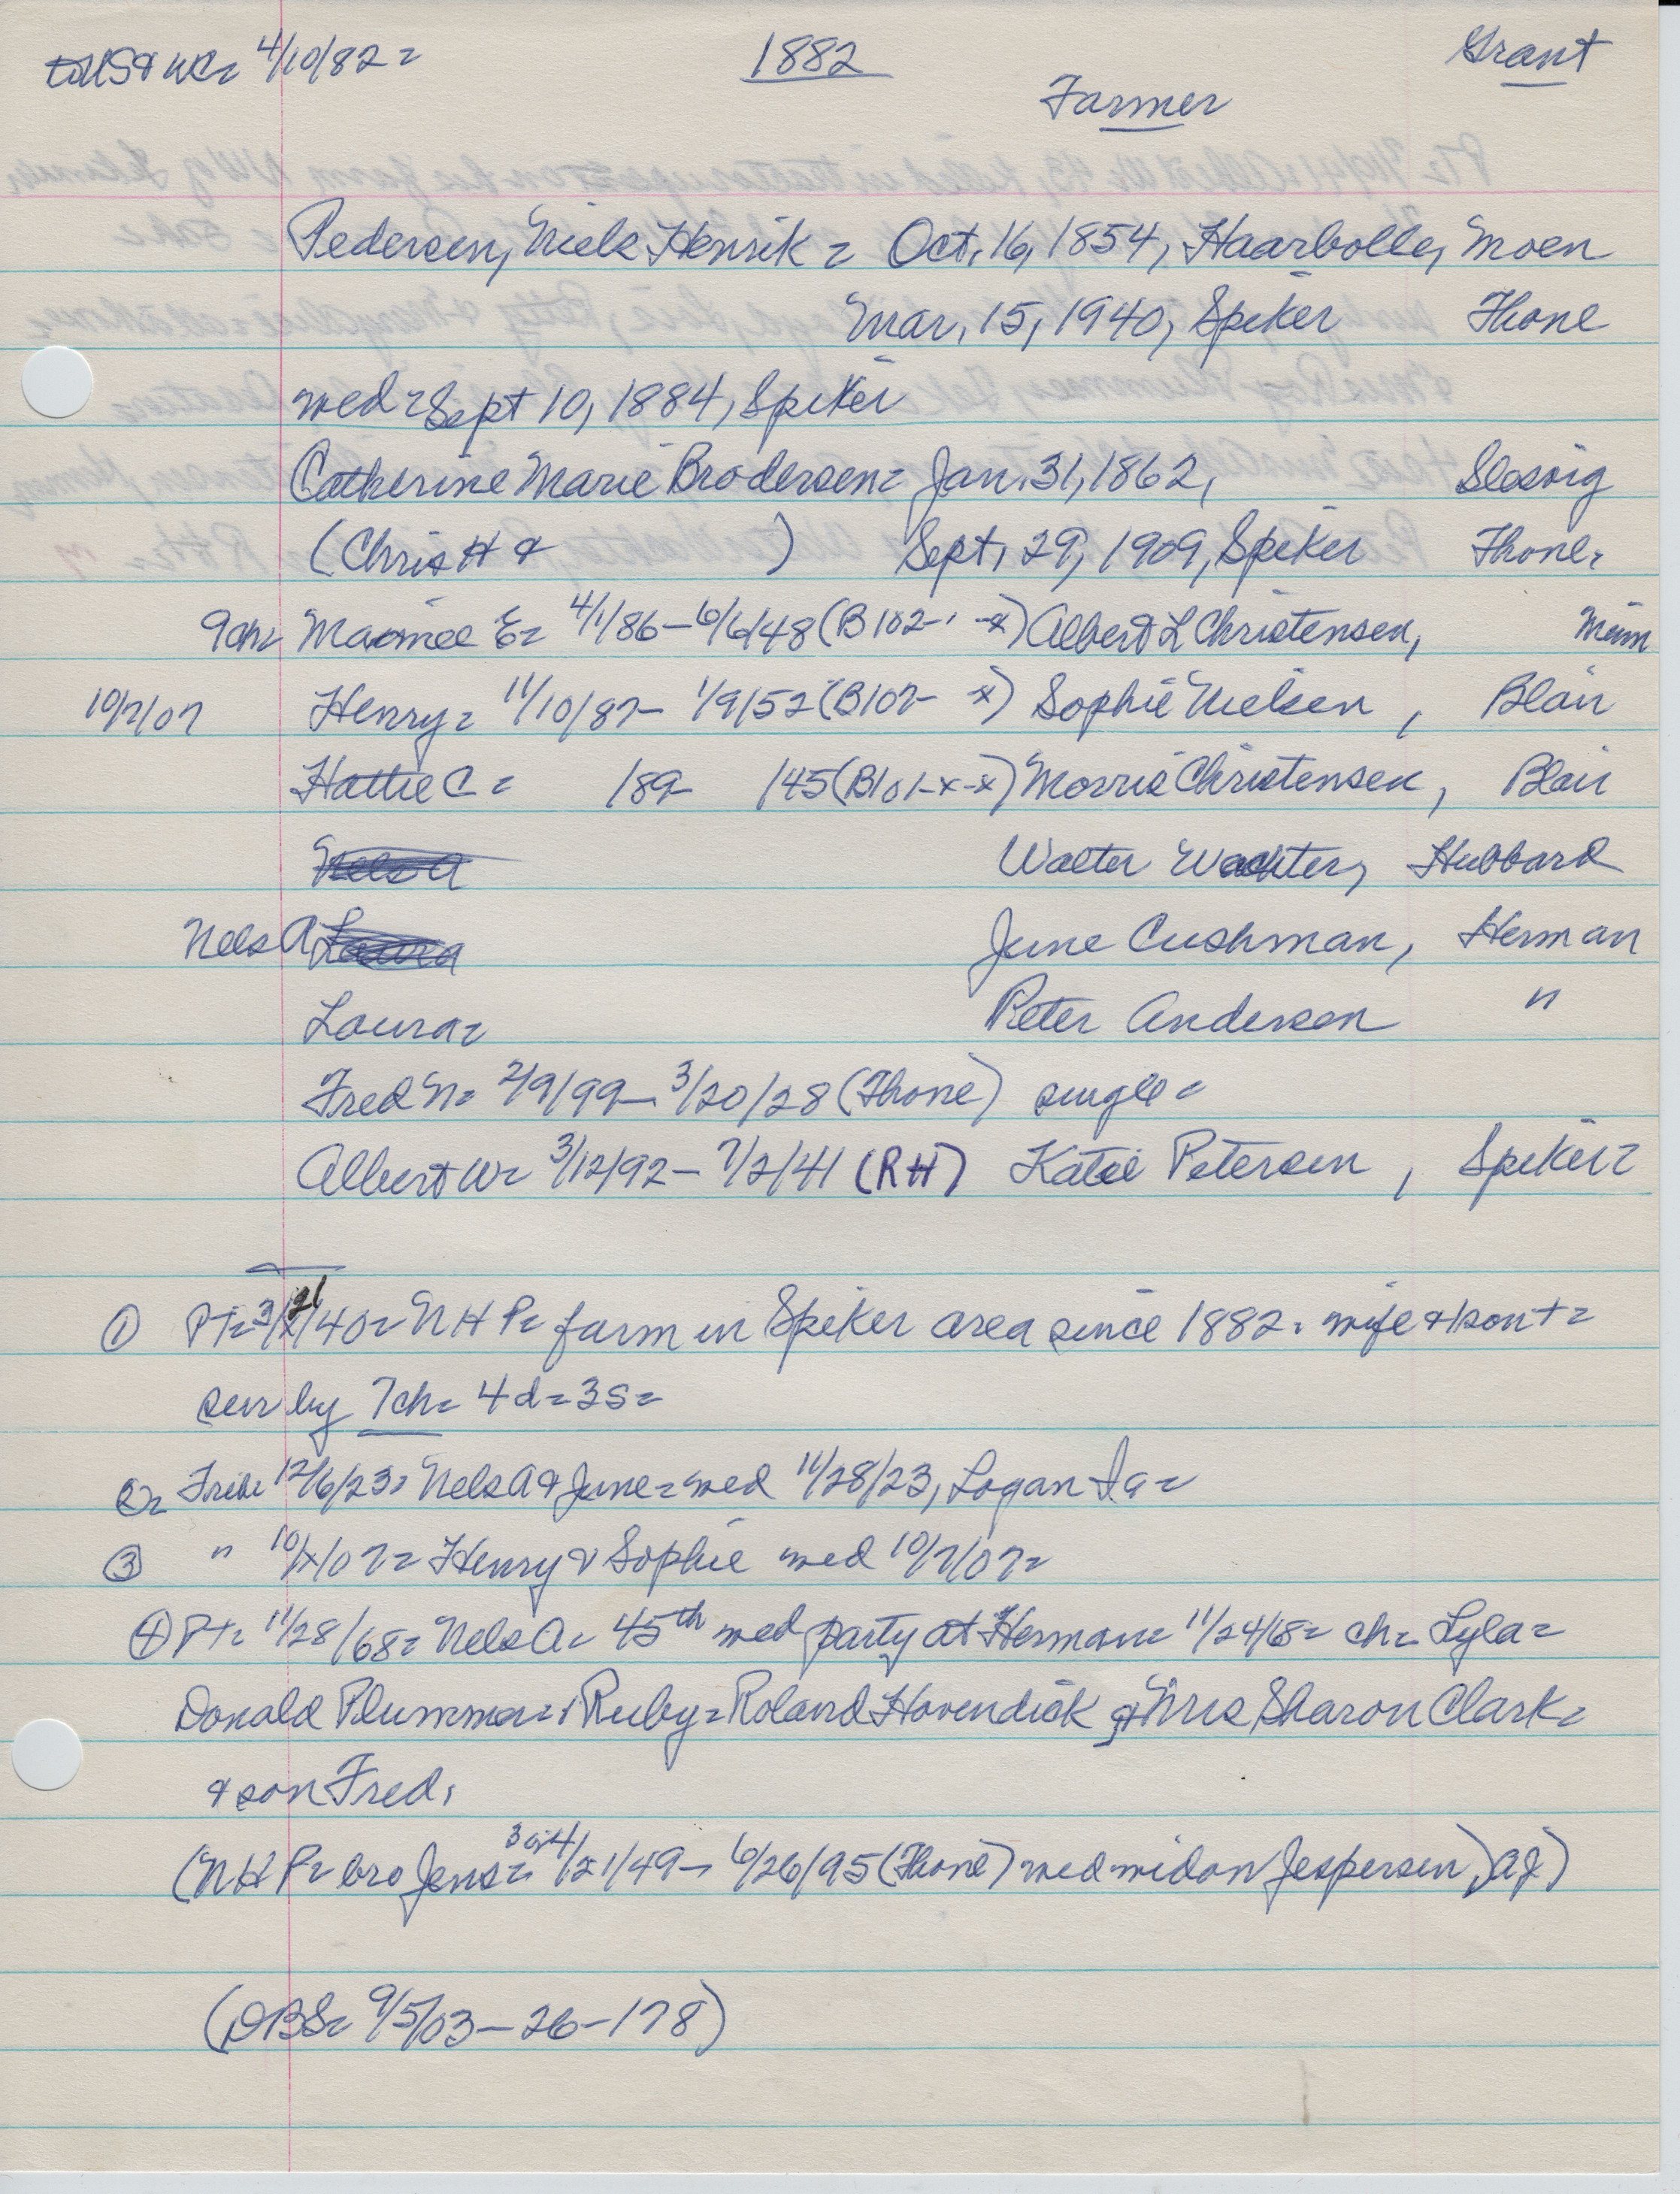 to US & WC= 4/10/82= 1882 Grant
Farmer
Pedersen, Niels Henrik = Oct. 16, 1854, Haarbolle, Moen
Mar. 15, 1940, Spiker Thone
wed = Sept 10, 1884, Spiker
Catherine Marie Brodersen= Jan. 31, 1862, Slesvig
(Chris H & ) Sept. 29, 1909, Spiker Thone.
9ch= Mamee E= 4/1/86-6/6/48 (B102- -x) Albert L Christensen, Minn
10/7/07 Henry= 11/10/87- 1/9/52 (B107- x) Sophie Nielsen, Blair
Hattie C = /89- /45 (B101-x-x) Morris Christensen, Blair
Nels A Walter Wachter, Hubbard
Nels A Laura June Cushman, Herman
Laura= Peter Andersen "
Fred N= 2/9/99-3/20/28 (Thone) single=
Albert W= 3/12/92- 7/2/41 (RH) Katie Petersen, Spiker=
① PT= 3/21/40= N H P= farm in Spiker area since 1882. wife & 1 son +=
surv by 7ch= 4d= 3s=
2= Trib= 12/6/23= Nels A & June= wed 11/28/23, Logan Ia=
③ " 10/x/07= Henry & Sophie wed 10/7/07=
④ PT= 11/28/68= Nels A= 45th wed party at Herman= 11/24/68= ch= Lyla=
Donald Plummer= Ruby= Roland Hovendick & Mrs Sharon Clark=
& son Fred.
(N H P= bro Jens= 3 or 4/21/49- 6/26/95 (Thone) wed widow Jespersen, )
(DBS= 9/5/03-26-178)